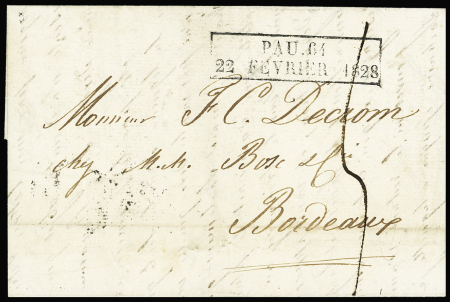 PAU.64
22 FÉVRIER 1828
Monsieur F C. Decrom
chez M.M. Bosc & Cie
Bordeaux